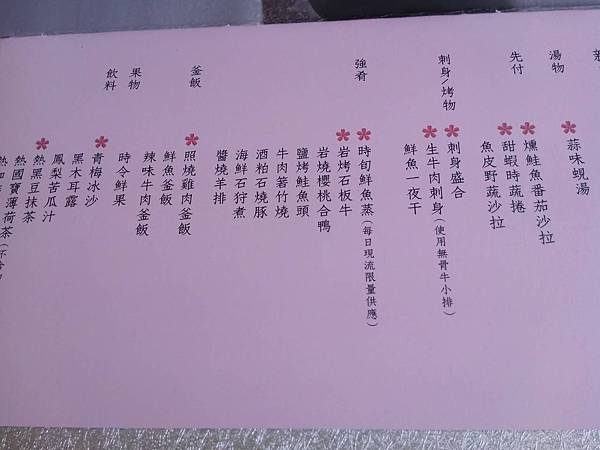 湯物
蒜味蜆湯
先付
燻鮭魚番茄沙拉
甜蝦時蔬捲
魚皮野蔬沙拉
刺身/烤物
刺身盛合
生牛肉刺身(使用無骨牛小排)
鮮魚一夜干
強肴
時旬鮮魚蒸(每日現流限量供應)
岩烤石板牛
岩燒櫻桃合鴨
鹽烤鮭魚頭
牛肉箬竹燒
酒粕石燒豚
海鮮石狩煮
醬燒羊排
釜飯
照燒雞肉釜飯
鮮魚釜飯
辣味牛肉釜飯
果物
時令鮮果
飲料
青梅冰沙
黑木耳露
鳳梨苦瓜汁
熱黑豆抹茶
熱國寶薄荷茶(不含